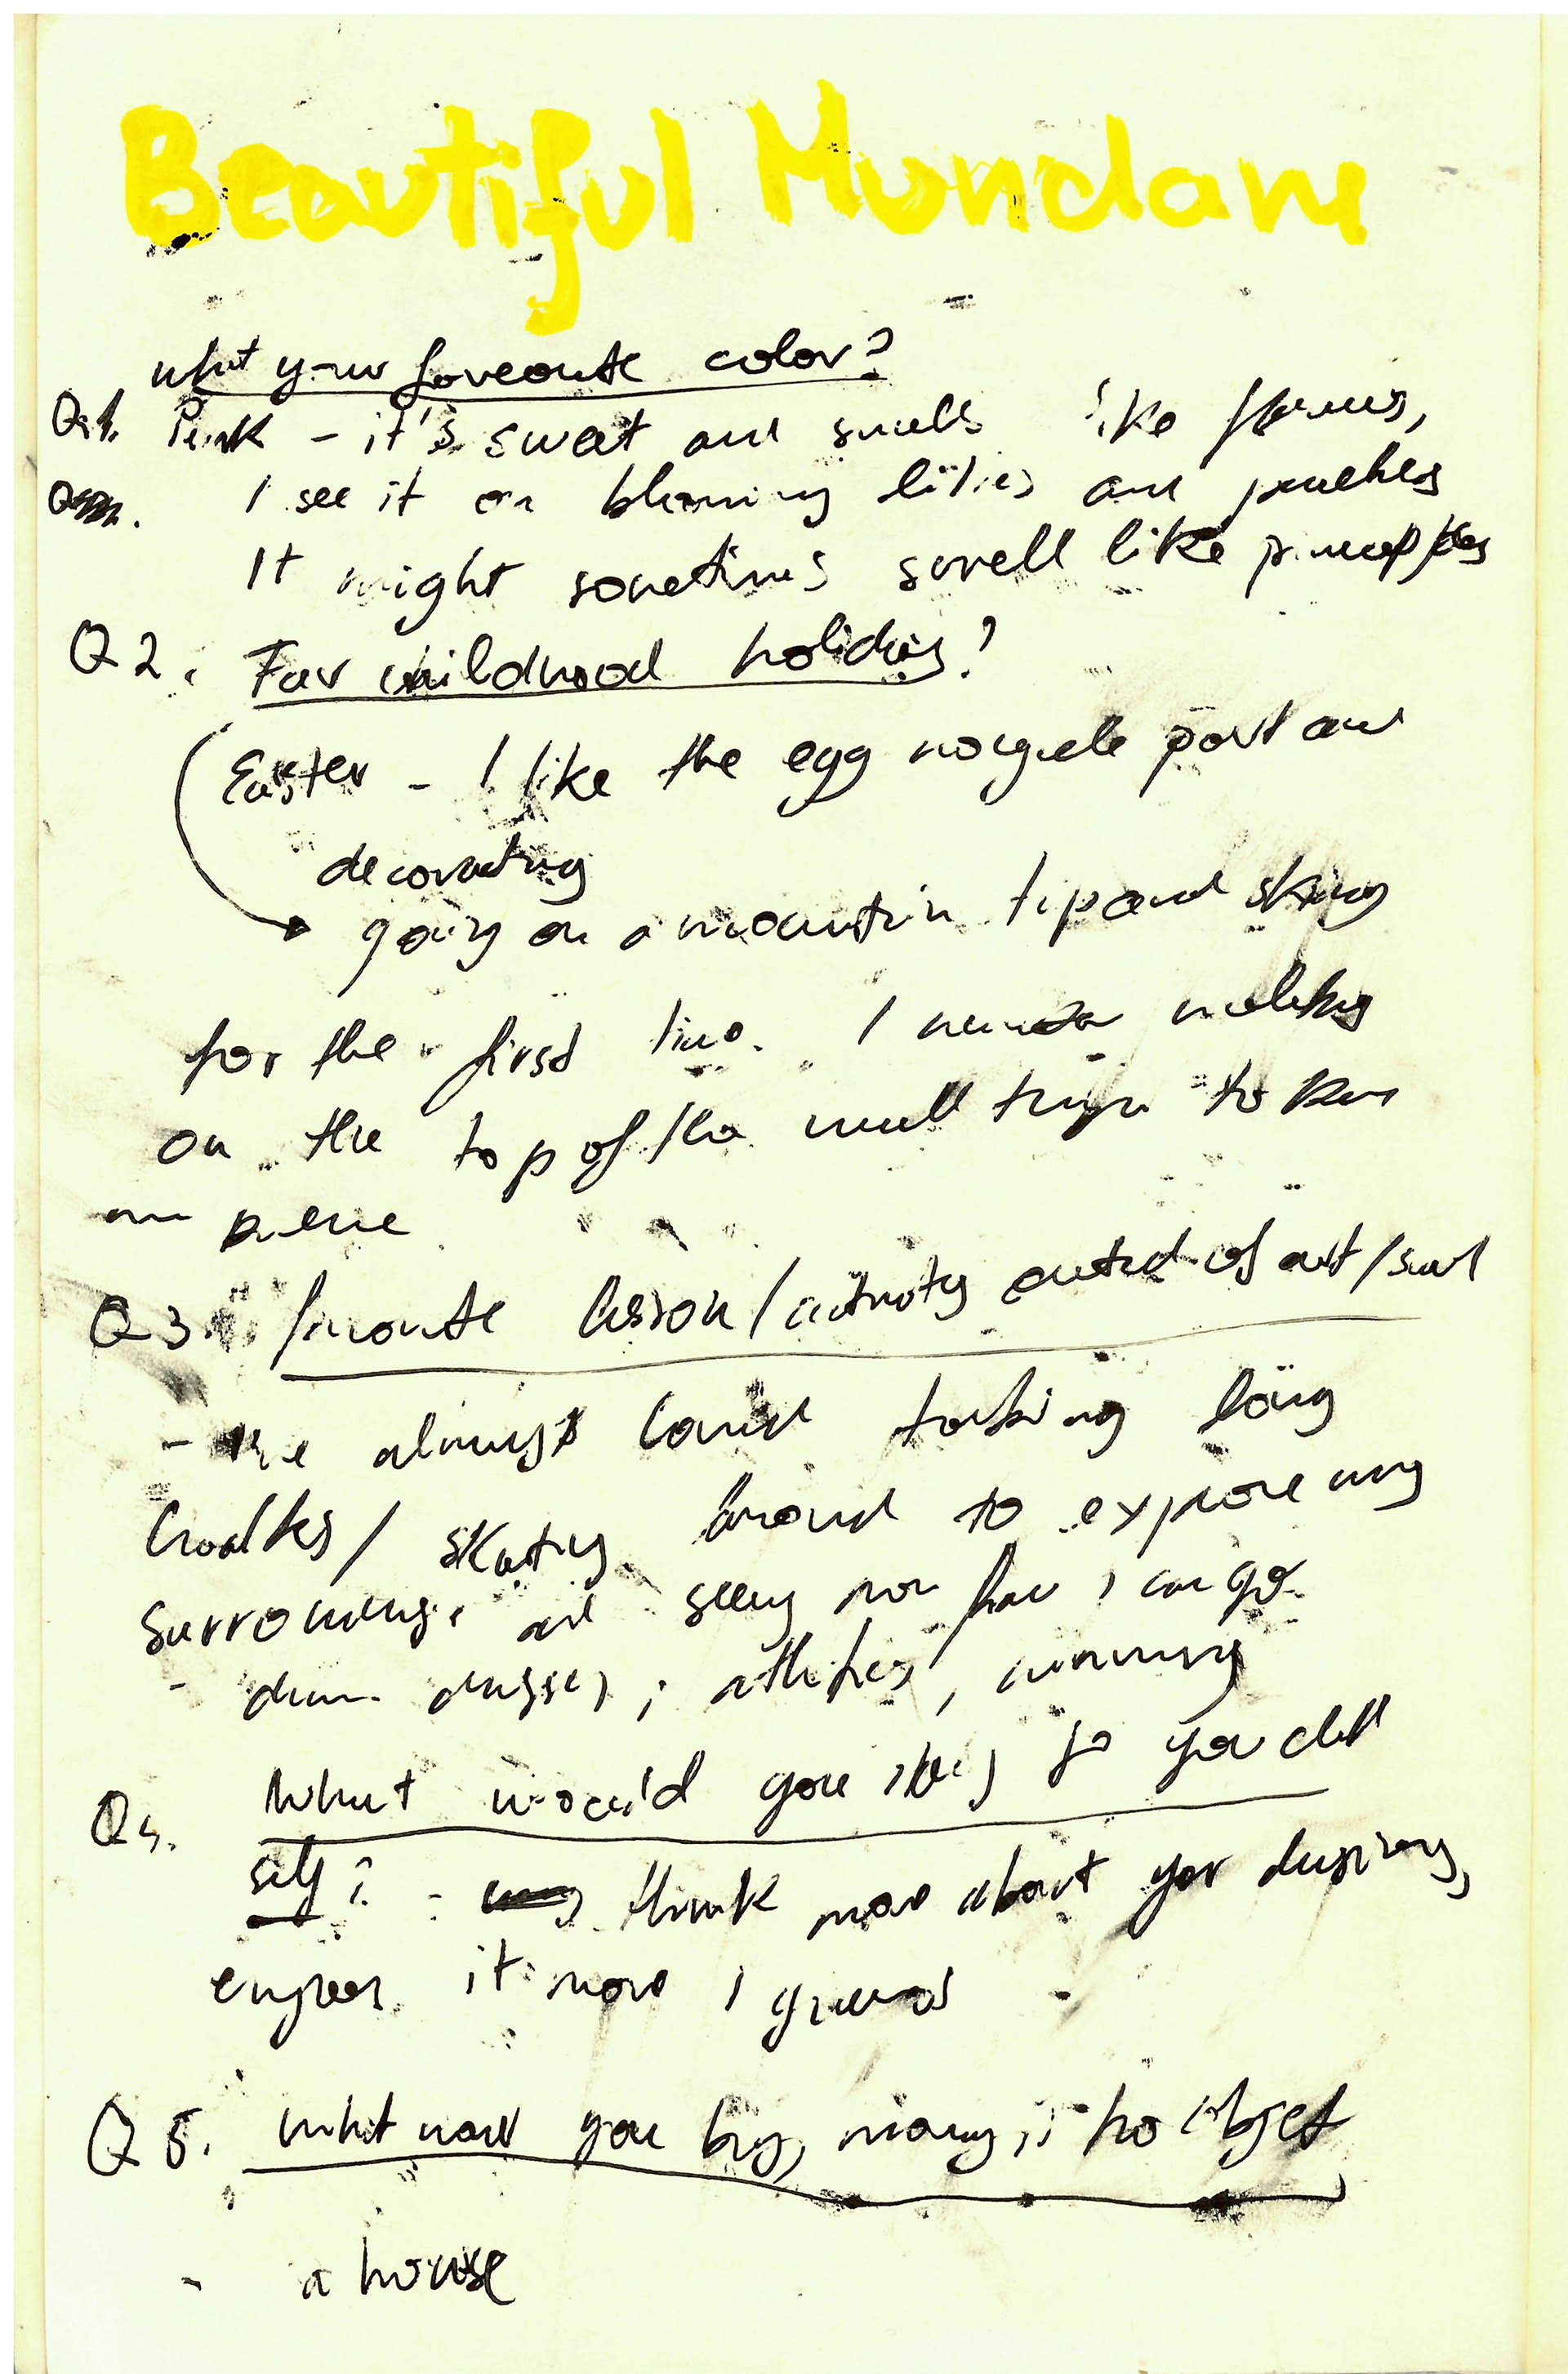 Beautiful Mundane
what your faveoute color?
Q1. Pink - it's sweet and smells like flowers,
I see it on blooming lilies and peaches
It might sometimes smell like pineapples
Q2. Fav childhood holiday?
Easter - I like the egg part and
decorating
going on a mountin trip and skiing
for the first time. I
on the top of the
Q3. favoute lesson / activity outsid of art /
- I've always loved taking long
walks / skating around to explore my
surroundings and seeing how far I can go
- drum classes, athletics, running
Q4. What would you to your
self? - think more about your
it more I
Q5. what would you buy, money is no object
- a house